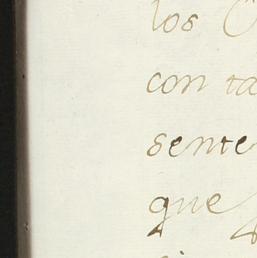 los
con ta
sente
que